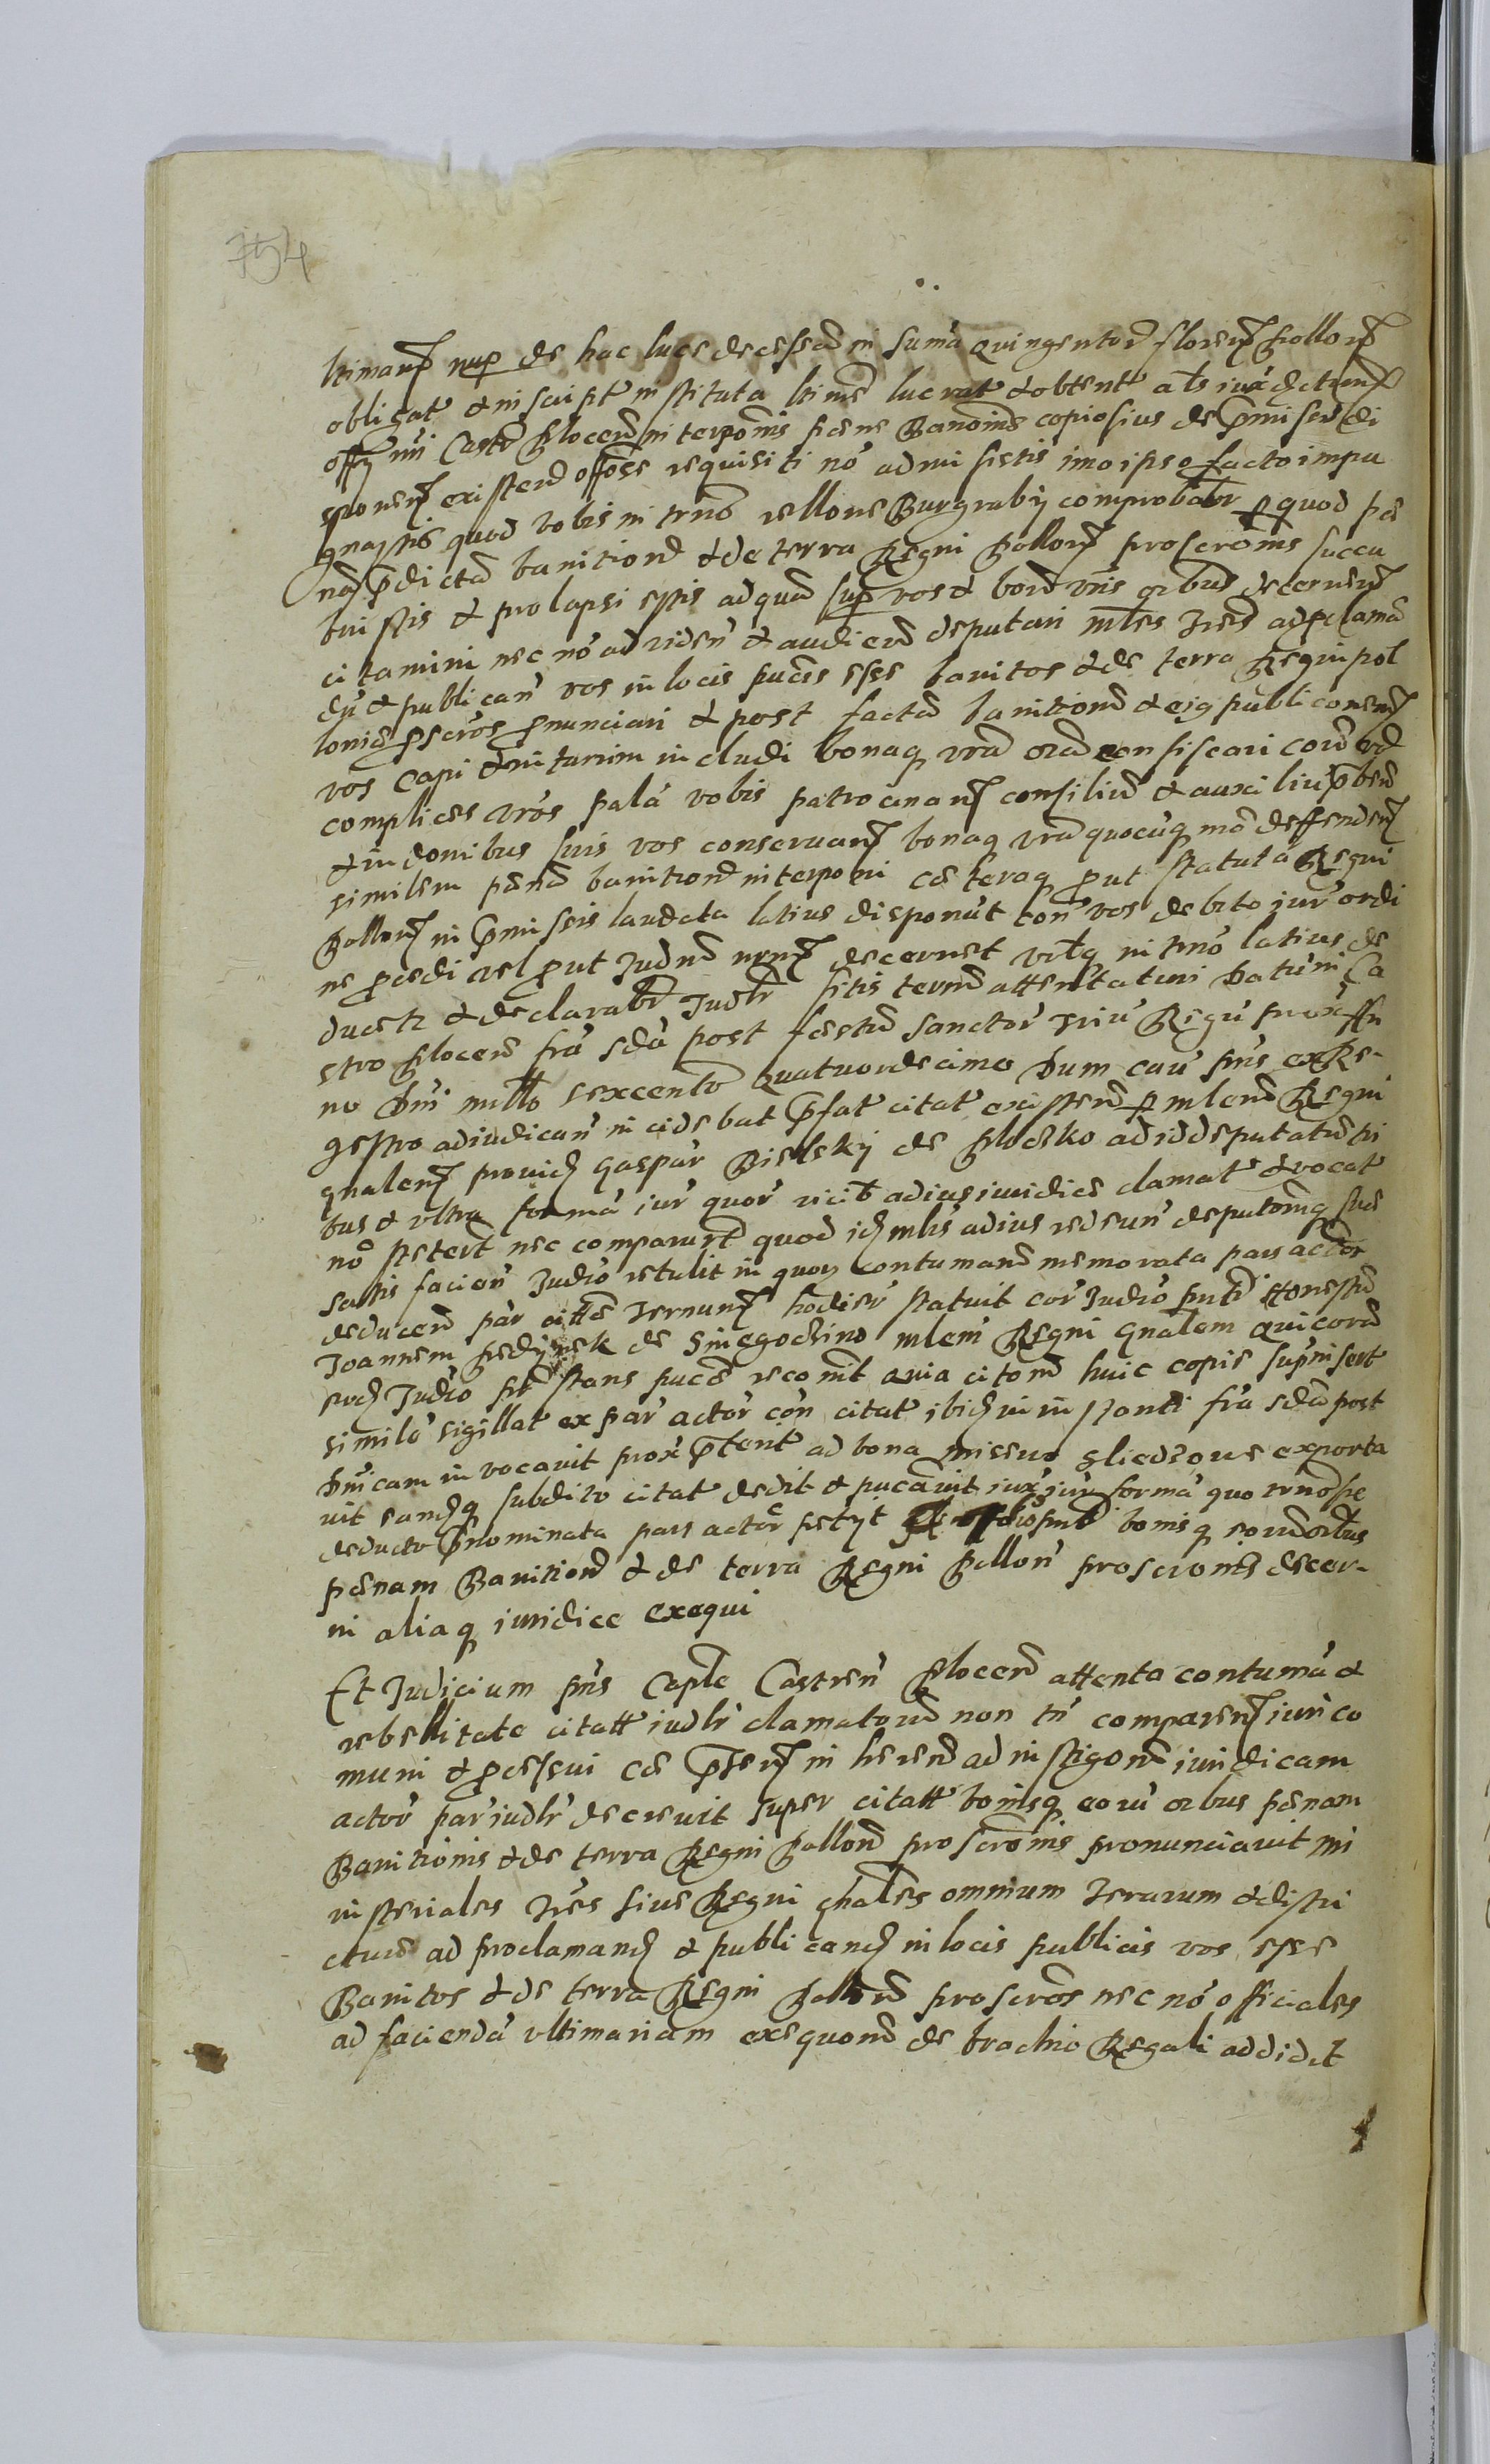 754
nup de hac luce decessa in suma quingentor floren Pollon
obligat & inscript instituta lucrat & obtent als iuxa
offy nri Castr Plocen interponis pene Banonis copiosius de pmiser di
sponen existen offose requisiti no admisistis imo ipso facto impu
gnastis quod vobis in trno rellone Burgrabij comprobabr p quod pe
na pdicta banition & de terra Regni Pollon proscronis succu
buistis & prolapsi estis ad qua sup vos & bona vris orbus decernen
citamini nec no ad viden & audien deputari mles Tres ad proclaman
du & publican vos in locis pucis esse banitos & de terra Regni pol
lonie pscros pnunciari & post facta banition & eig publiconem
vos capi & includi bonaq vra ora confiscari
complices vros pala vobis patrocinan consiliu & auxiliu pben
& in domibus suis vos conservan bonaq vra quocuq mo deffenden
similem pena banition interponi ceteraq put statuta Regni
Pollon in pmissis laudata latius disponut con vos debito iur ordi
ne pcedi vel put Judm nrm decernet vltq in trno latius de
ducetr & declarabr Judlr sitis termi attentaturi Datum in Ca
stro Plocen fra sda post festu sanctor triu Regu prox An
no Dni millo sexcento quatuordecimo Dum cau pns ex Re-
gestro adiudican incidebat pfat citat existen p mlem Regni
gnalem provid Gaspar Bielskj de Plocko ad id deputatu tri
bus & vltra forma iur quor vicib ad ius iuridice clamat & vocat
no steterit nec comparurt quod id mlis ad ius redeun deputoniq sue
satis facien Judio retulit in quor contuman memorata pars actor
deducen par citte Termin hodier statuit cor Judio pnti Honestu
Joannem de Sniegocino mlem Regni Gnalem qui cora
eod Judio stans puce reconit quia citom huic copie supinsert
simile sigillat ex par actor con citat ibid in fra sda post
Dnicam invocavit prox ptent ad bona exporta
vit eandq subdito citat dedit & pucavit iux iur forma quo trno sic
deducto pnominata pars actor petyt bonisq eorudoribus
penam Banition & de terra Regni Pollon proscronis decer-
ni aliaq iuridice exequi
Et Judicium pns Caple Castren Plocen attenta contuma &
rebellitate citatt iudlr clamatoru non tn comparen iuri co
muni & pcessui ce psen inheren ad instigonem iuridicam
actor par iudlr decrevit super citatt bonisq eoru orbus penam
Banitionis & de terra Regni Pollon proscronis pronunciavit mi
nisteriales Tres sive Regni gnales omnium Terarum & distri
ctuu ad proclamand & publicand in locis publicis vos esse
Banitos & de terra Regni Pollon proscros nec no officiales
ad facienda vltimariam exequonem de brachio Regali addidit